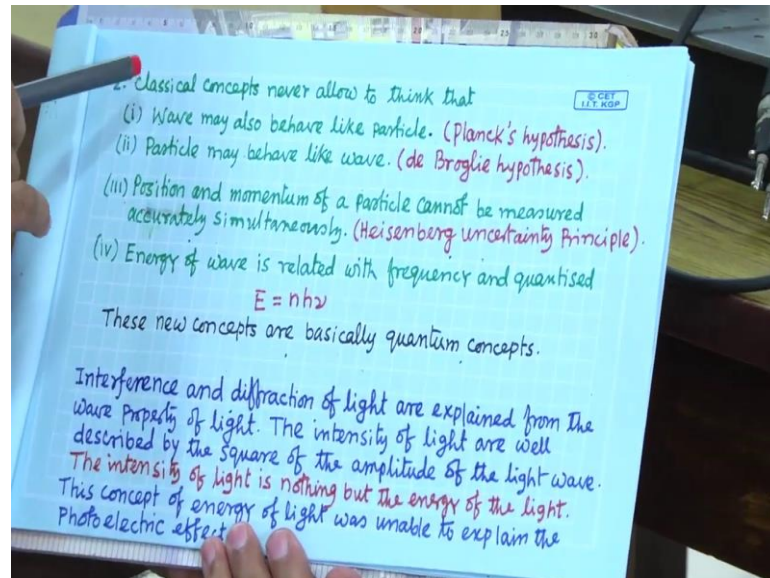 2. Classical concepts never allow to think that
© CET
I.I.T. KGP
(i) Wave may also behave like particle. (Planck's hypothesis).
(ii) Particle may behave like wave. (de Broglie hypothesis).
(iii) Position and momentum of a particle cannot be measured
accurately simultaneously. (Heisenberg uncertainty Principle).
(iv) Energy of wave is related with frequency and quantised
E = nhν
These new concepts are basically quantum concepts.
Interference and diffraction of light are explained from the
wave property of light. The intensity of light are well
described by the square of the amplitude of the light wave.
The intensity of light is nothing but the energy of the light.
This concept of energy of light was unable to explain the
Photoelectric effect